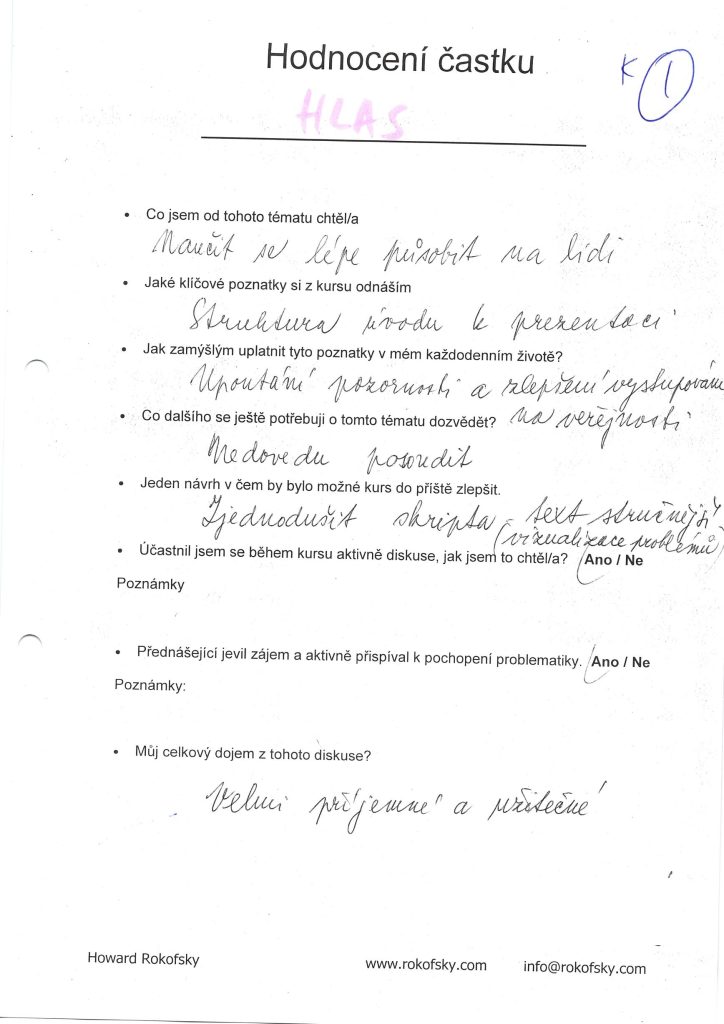 Hodnocení častku
K 1
HLAS
• Co jsem od tohoto tématu chtěl/a
Naučit se lépe působit na lidi
• Jaké klíčové poznatky si z kursu odnáším
Struktura úvodu k prezentaci
• Jak zamýšlým uplatnit tyto poznatky v mém každodenním životě?
Upoutání pozornosti a zlepšení vystupování
na veřejnosti
• Co dalšího se ještě potřebuji o tomto tématu dozvědět?
Nedovedu posoudit
• Jeden návrh v čem by bylo možné kurs do příště zlepšit.
Zjednodušit skripta - text stručnější
(vizualizace problémů)
• Účastnil jsem se během kursu aktivně diskuse, jak jsem to chtěl/a? Ano / Ne
Poznámky
• Přednášející jevil zájem a aktivně přispíval k pochopení problematiky. Ano / Ne
Poznámky:
• Můj celkový dojem z tohoto diskuse?
Velmi příjemné a užitečné
Howard Rokofsky www.rokofsky.com info@rokofsky.com